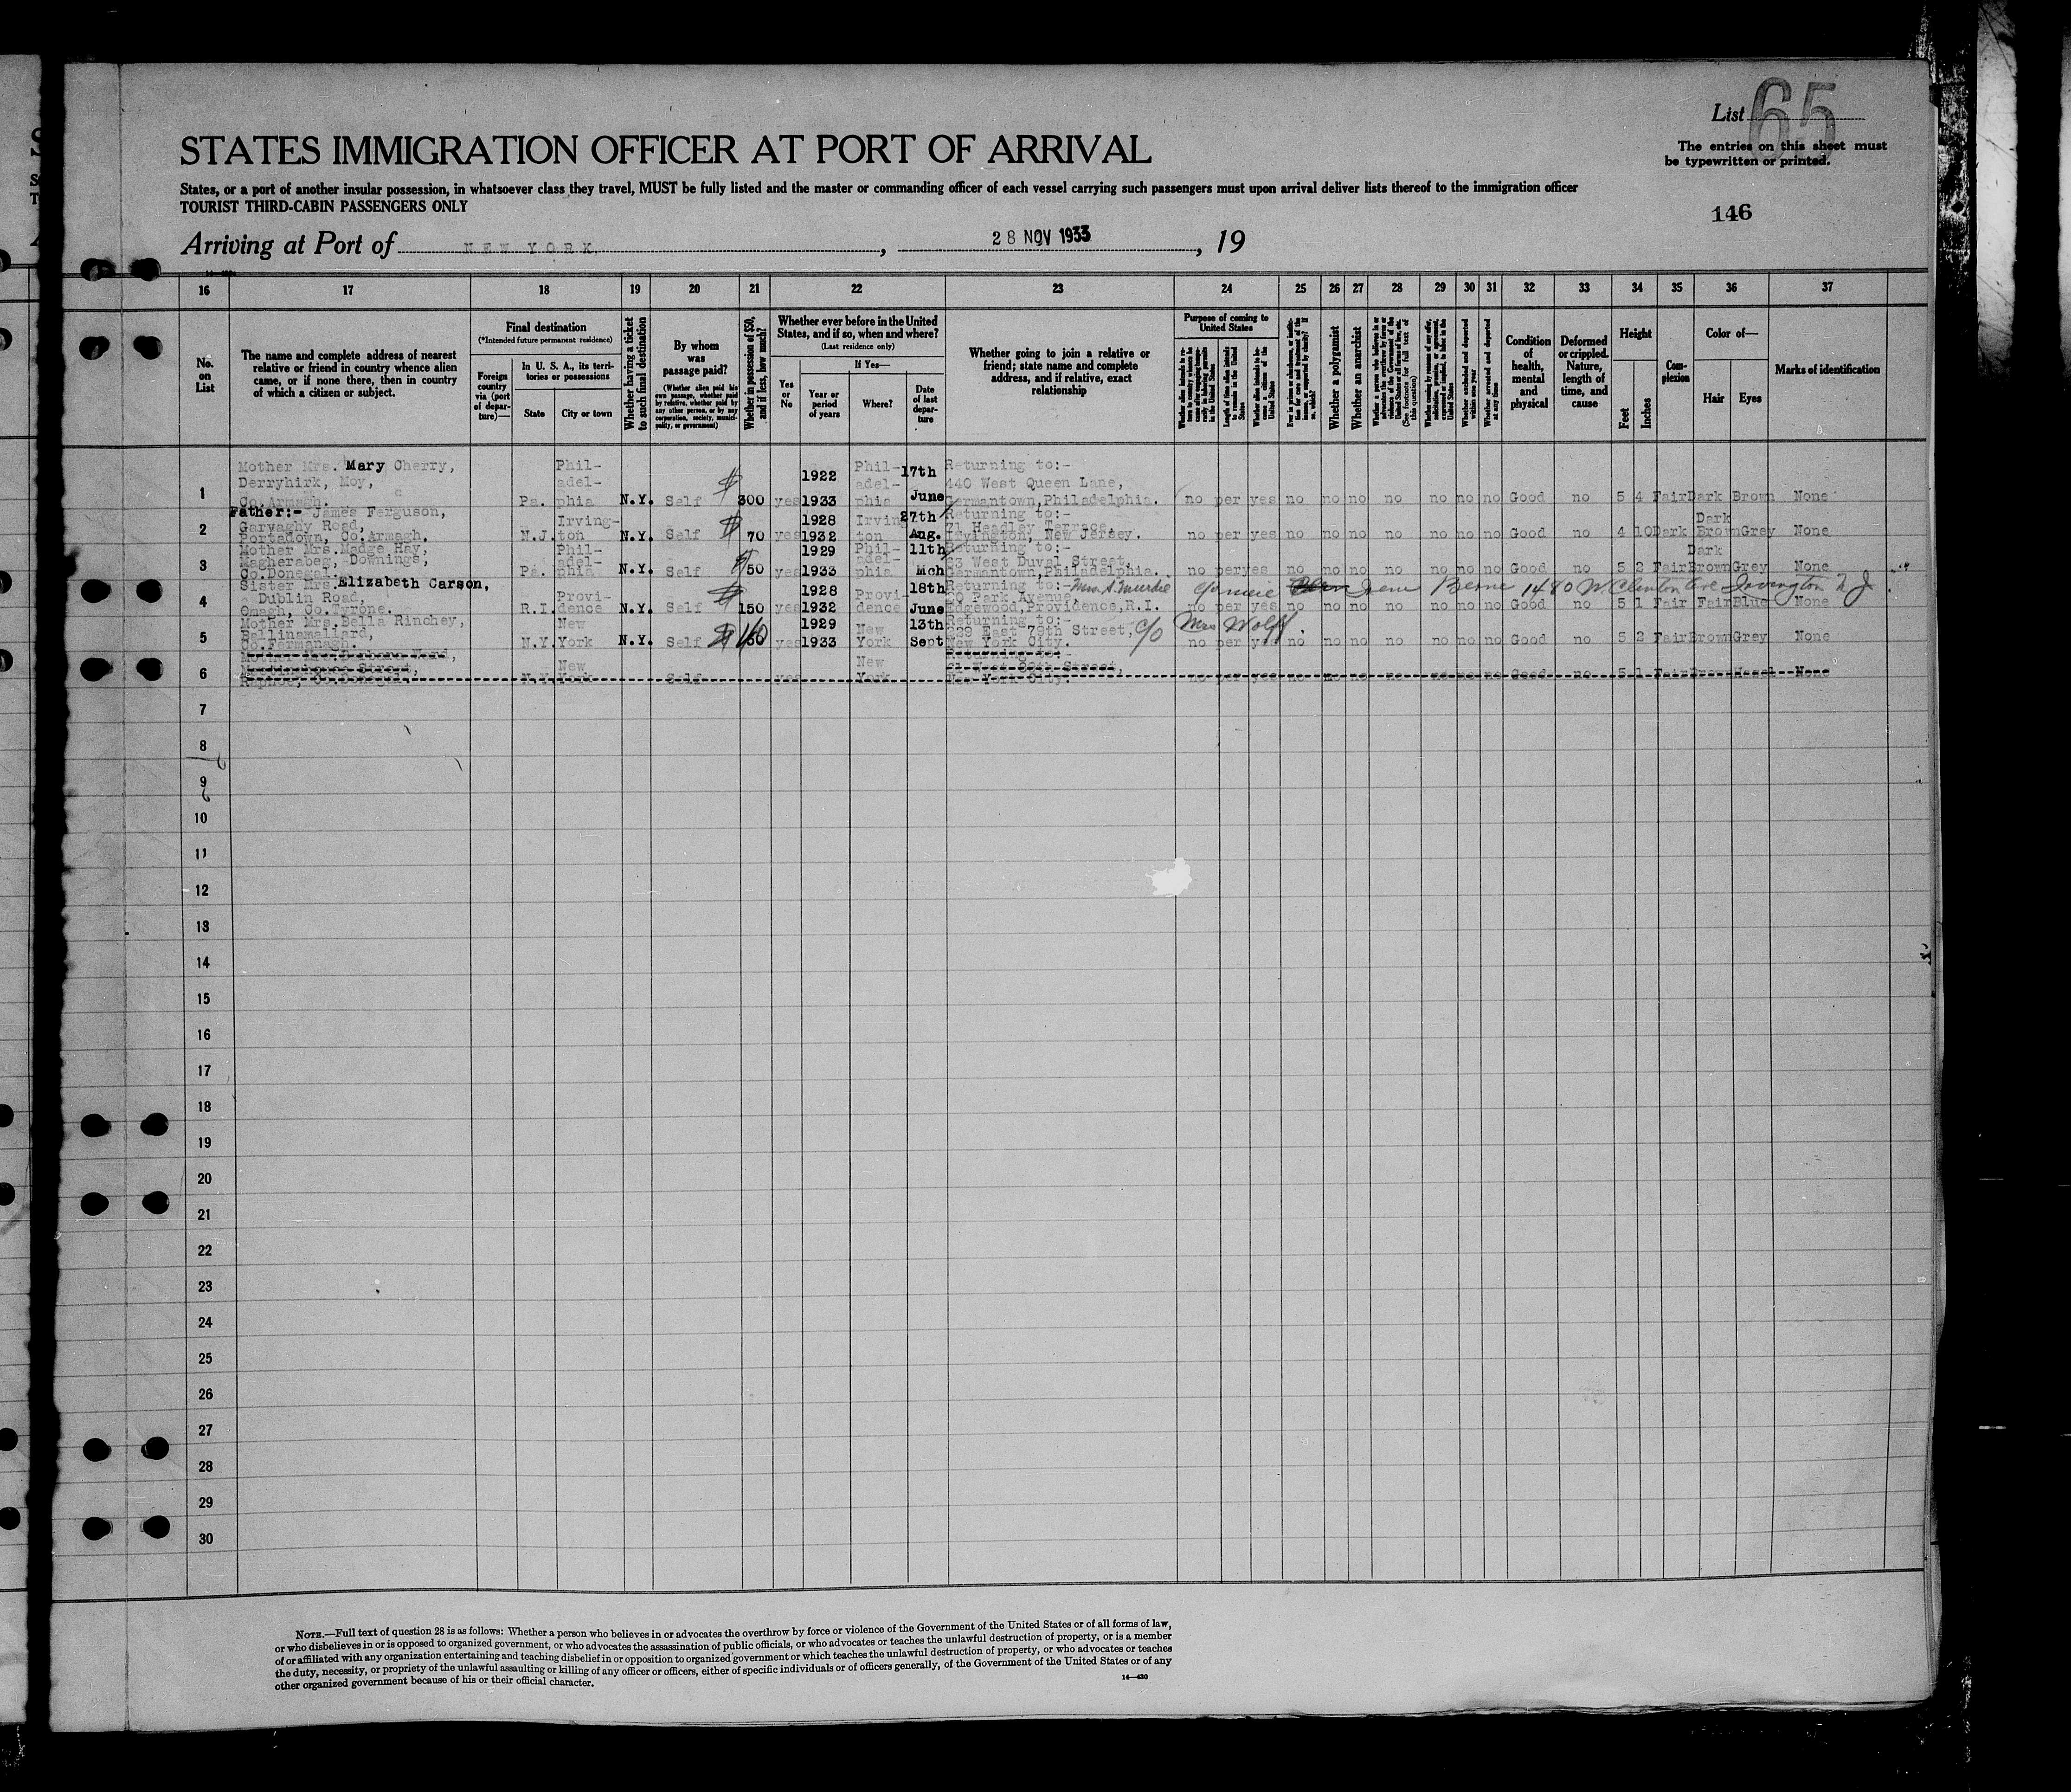 List 65
The entries on this sheet must
be typewritten or printed.
STATES IMMIGRATION OFFICER AT PORT OF ARRIVAL
States, or a port of another insular possession, in whatsoever class they travel, MUST be fully listed and the master or commanding officer of each vessel carrying such passengers must upon arrival deliver lists thereof to the immigration officer
TOURIST THIRD-CABIN PASSENGERS ONLY
146
Arriving at Port of NEW YORK, 28 NOV 1933, 19
16 17 18 19 20 21 22 23 24 25 26 27 28 29 30 31 32 33 34 35 36 37
No. on List
The name and complete address of nearest
relative or friend in country whence alien
came, or if none there, then in country
of which a citizen or subject.
Final destination
(*Intended future permanent residence)
Foreign country via (port of departure)—
In U. S. A., its territories or possessions
State
City or town
Whether having a ticket to such final destination
By whom was passage paid?
(Whether alien paid his own passage, whether paid by relative, whether paid by any other person, or by any corporation, society, municipality, or government)
Whether in possession of $50, and if less, how much?
Whether ever before in the United States, and if so, when and where?
(Last residence only)
Yes or No
If Yes—
Year or period of years
Where?
Date of last departure
Whether going to join a relative or
friend; state name and complete
address, and if relative, exact
relationship
Purpose of coming to United States
Length of time alien intends to remain in the United States
Whether a polygamist
Whether an anarchist
Whether arrested and deported at any time
Condition of health, mental and physical
Deformed or crippled. Nature, length of time, and cause
Height
Feet
Inches
Complexion
Color of—
Hair
Eyes
Marks of identification
1 Mother Mrs. Mary Cherry, Derryhirk, Moy, Co.Armagh. Pa. Philadelphia N.Y. Self $ 300 yes 1922 1933 Philadelphia 17th June Returning to:- 440 West Queen Lane, Germantown,Philadelphia. no per yes no no no no no no no Good no 5 4 Fair Dark Brown None
2 Father:- James Ferguson, Garvaghy Road, Portadown, Co.Armagh. N.J. Irvington N.Y. Self $ 70 yes 1928 1932 Irvington 27th Aug. Returning to:- 71 Headley Terrace, Irvington, New Jersey. no per yes no no no no no no no Good no 4 10 Dark Dark Brown Grey None
3 Mother Mrs.Madge Hay, Magherabeg, Downings, Co.Donegal. Pa. Philadelphia N.Y. Self $ 50 yes 1929 1933 Philadelphia 11th Mch Returning to:- 63 West Duval Street, Germantown,Philadelphia. no per yes no no no no no no no Good no 5 2 Fair Dark Brown Grey None
4 Sister Mrs.Elizabeth Carson, Dublin Road, Omagh, Co.Tyrone. R.I. Providence N.Y. Self $ 150 yes 1928 1932 Providence 18th June Returning to:- Park Avenue, Edgewood,Providence,R.I. no per yes no no no no no no no Good no 5 1 Fair Fair Blue None
Mrs. S. Murdie c/o niece Irene Berne 1480 W Clinton Ave Irvington N J.
5 Mother Mrs.Bella Rinchey, Ballinamallard, Co.Fermanagh. N.Y. New York N.Y. Self $ yes 1929 1933 New York 13th Sept Returning to:- 229 East 79th Street, New York City. c/o Mrs Wolff. no per yes no no no no no no no Good no 5 2 Fair Brown Grey None
6 Mother Mrs. Ward, Street, Raphoe, Co.Donegal. N.Y. New York Self yes New York Returning to:- Street, New York City. no per yes no no no no no no no Good no 5 1 Fair Brown Hazel None
7
8
9
10
11
12
13
14
15
16
17
18
19
20
21
22
23
24
25
26
27
28
29
30
NOTE.—Full text of question 28 is as follows: Whether a person who believes in or advocates the overthrow by force or violence of the Government of the United States or of all forms of law,
or who disbelieves in or is opposed to organized government, or who advocates the assassination of public officials, or who advocates or teaches the unlawful destruction of property, or is a member
of or affiliated with any organization entertaining and teaching disbelief in or opposition to organized government or which teaches the unlawful destruction of property, or who advocates or teaches
the duty, necessity, or propriety of the unlawful assaulting or killing of any officer or officers, either of specific individuals or of officers generally, of the Government of the United States or of any
other organized government because of his or their official character.
14—430